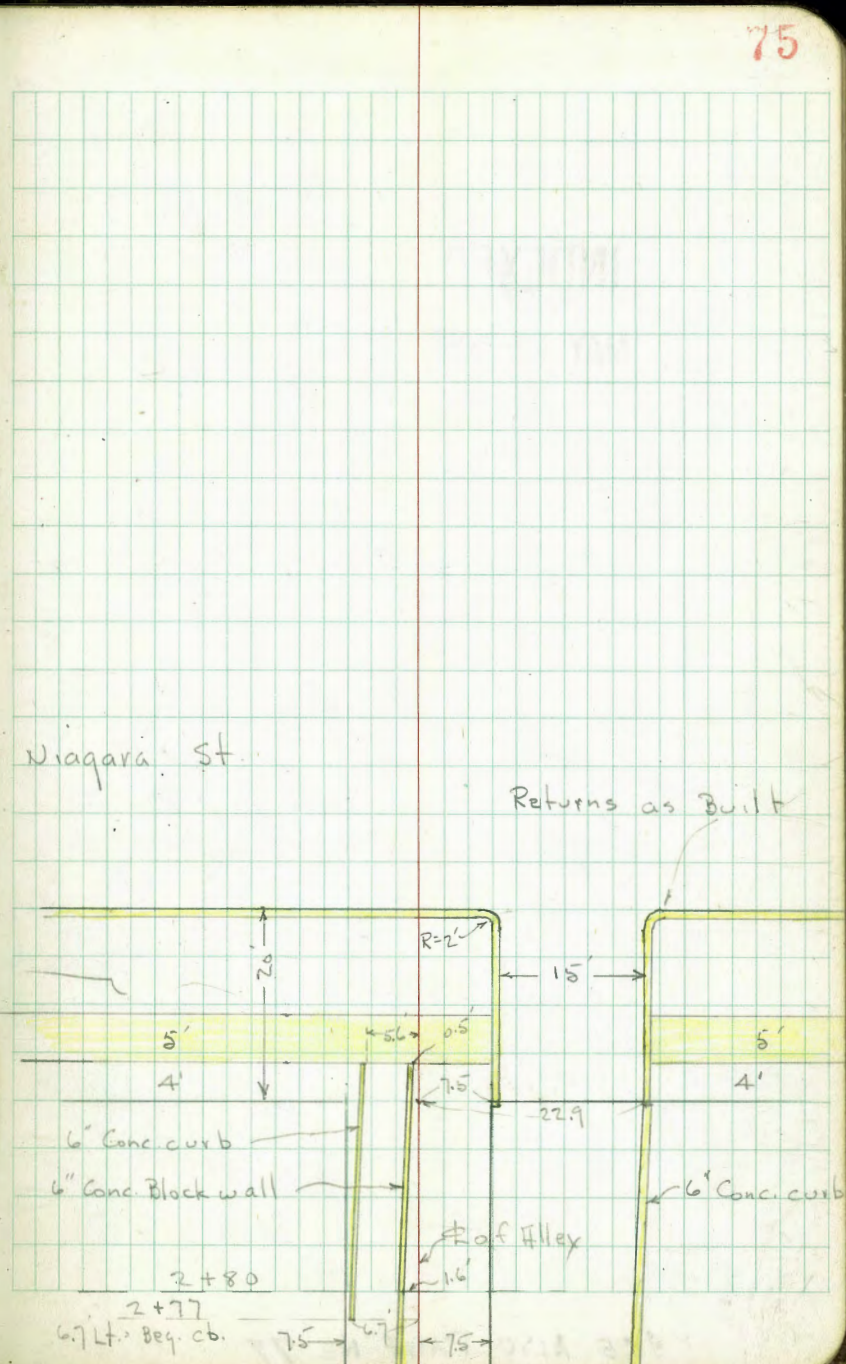 75
Niagara St.
Returns as Built
R=2'
20'
15'
5.6'
0.5'
5'
5'
4'
7.5
4'
22.9
6" Conc. curb
6" Conc. Block wall
6" Conc. curb
℄ of Alley
2+80
1.6'
2+77
6.7 Lt. Beg. cb.
6.7'
7.5
7.5